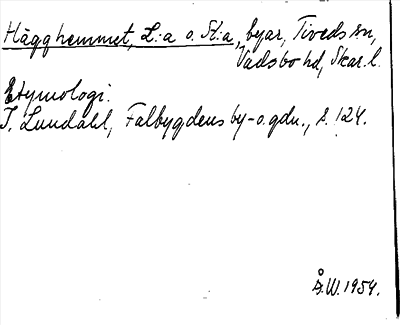 Hägghemmet, L:a o. St:a, byar, Tiveds sn,
Vadsbo hd, Skar. l.
Etymologi.
I. Lundahl, Falbygdens by- o. gdn., s. 124.
Å.W. 1954.